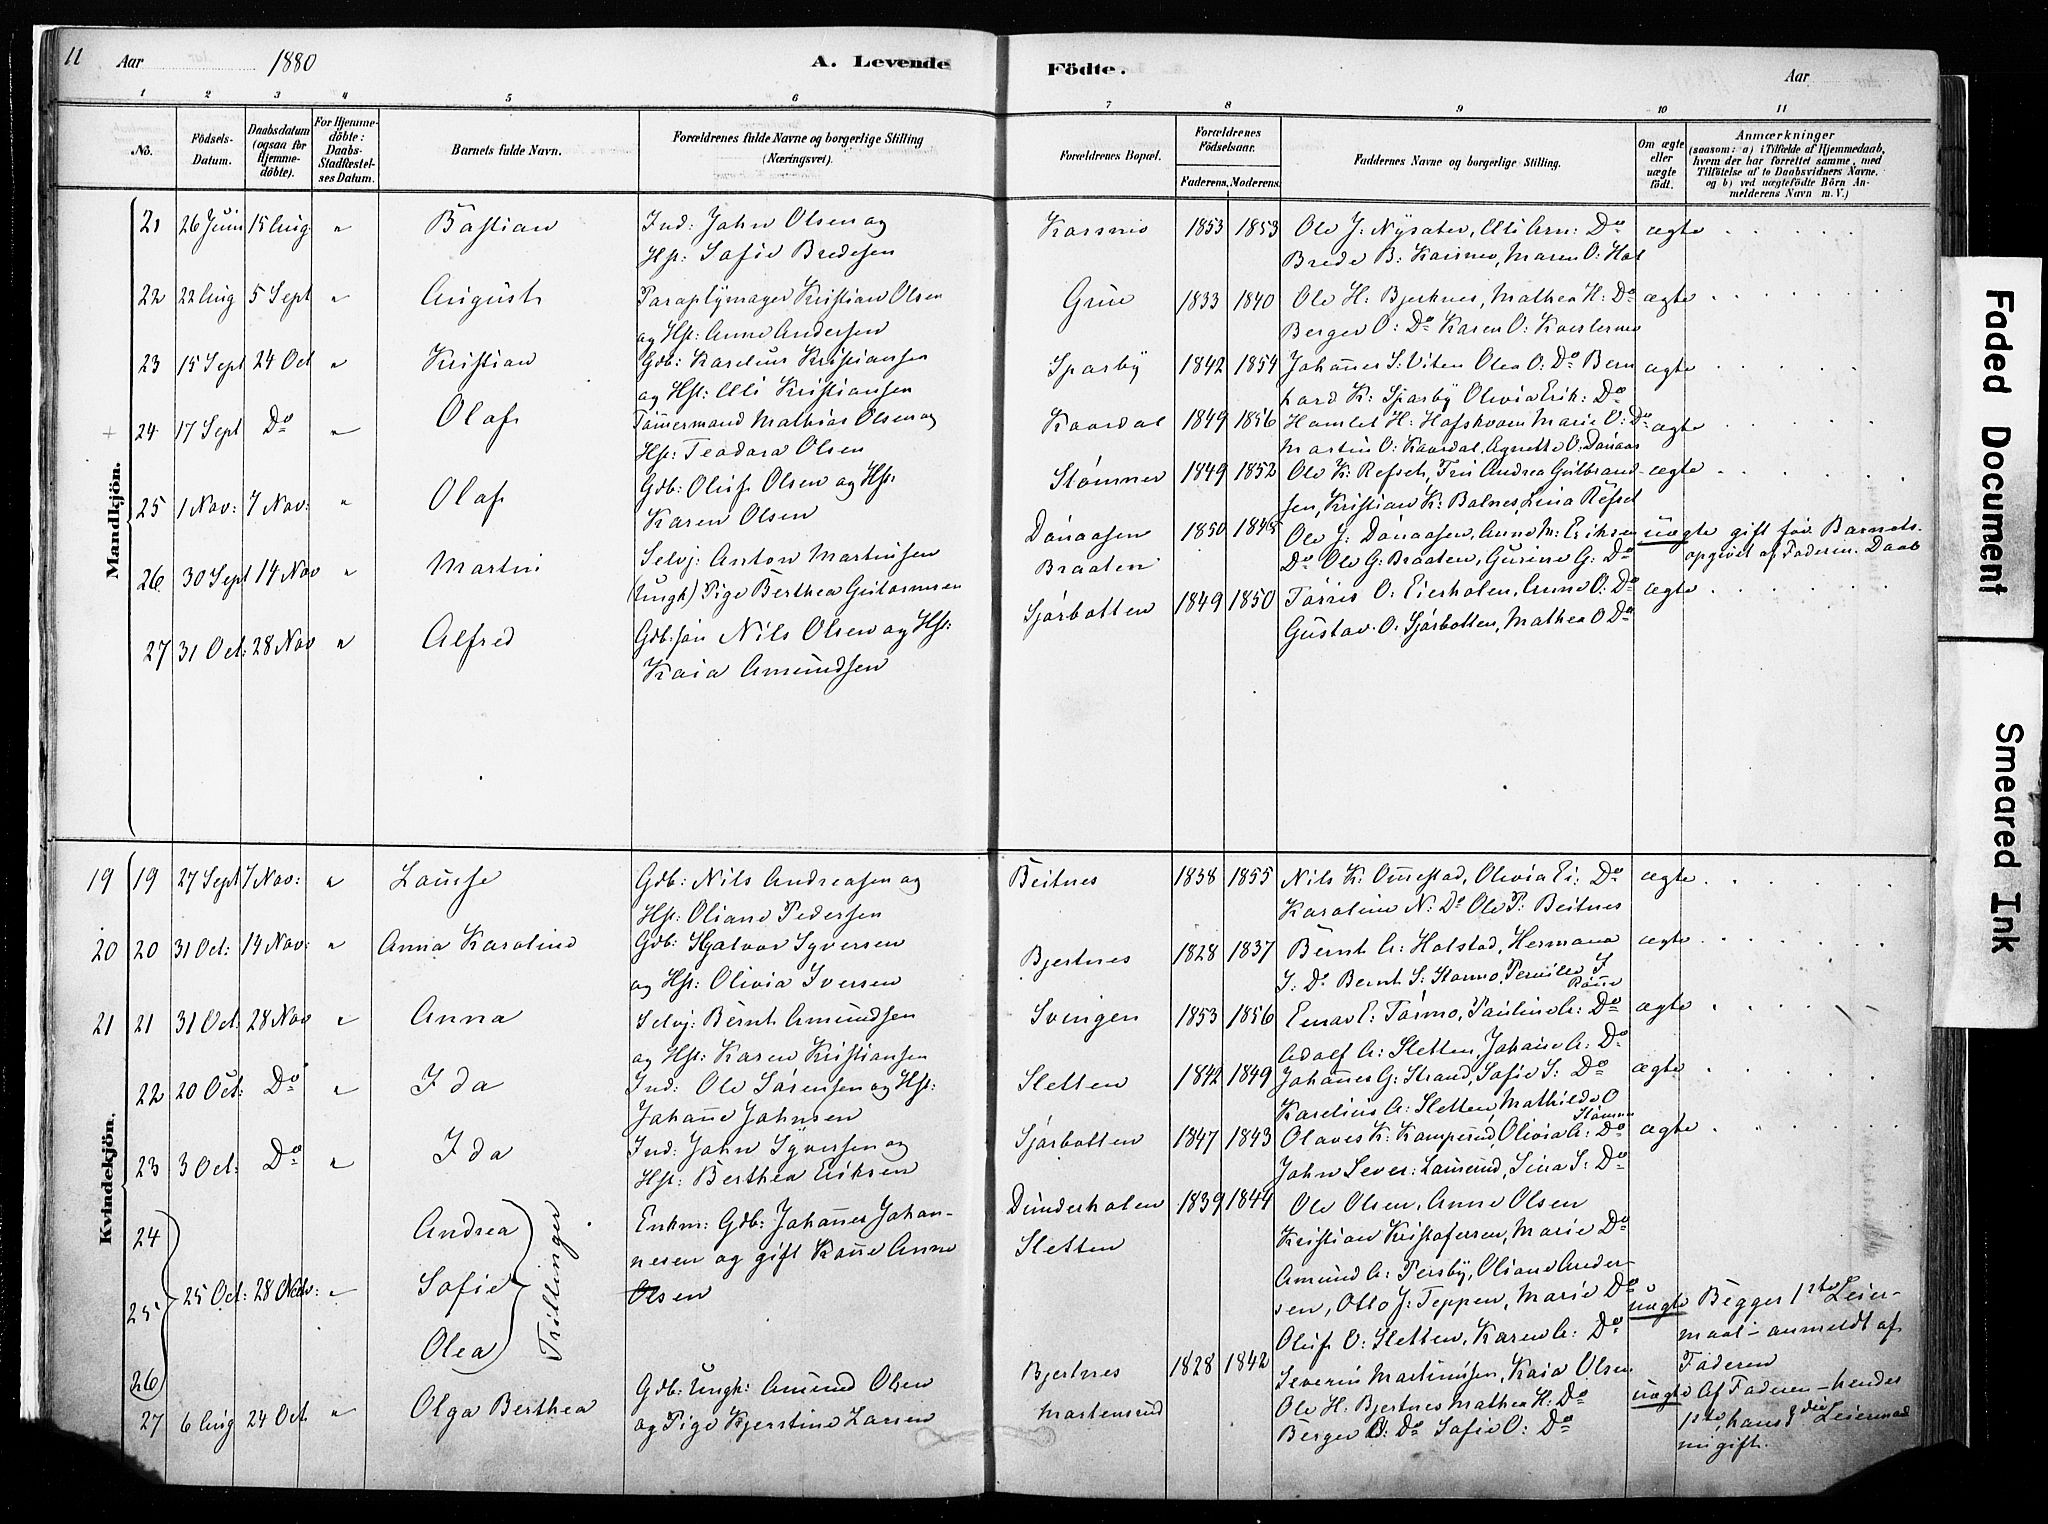 11 Aar 1880 A. Levende Födte. Aar
1 2 3 4 5 6 7 8 9 10 11
No.
Födsels-Datum.
Daabsdatum (ogsaa for Hjemme-döbte).
For Hjemme-döbte: Daabs-Stadfæstel-ses Datum.
Barnets fulde Navn.
Forældrenes fulde Navne og borgerlige Stilling (Næringsvei).
Forældrenes Bopæl.
Forældrenes Födselsaar.
Faderens. Moderens.
Faddernes Navne og borgerlige Stilling.
Om ægte eller uægte födt.
Anmærkninger (saasom: a) i Tilfælde af Hjemmedaab, hvem der har forrettet samme, med Tilföielse af to Daabsvidners Navne. og b) ved uægtefödte Börn An-melderens Navn m. V.)
Mandkjön.
21 26 Juni 15 Aug. " Bastian Ind: John Olsen og Karsnes 1853 1853 Ole J: Nysater, Elli Arn: Do ægte
Hst: Sofie Bredesen Brede B: Karsnes, Maren O: Hol
22 22 Aug 5 Sept " August Paraplymager Kristian Olsen Grue 1833 1840 Ole H: Bjerknes, Mathea H: Do ægte
og Hst: Anne Andersen Berger O: Do Karen O:
23 15 Sept 24 Oct " Kristian Gdb: Karelius Kristiansen Sparby 1842 1854 Johannes S: Viten Olea O: Do Bern ægte
og Hst: Elli Kristiansen hard K: Sparby Olivia Erik: Do
24 17 Sept Do " Olaf Tömmermand Mathias Olsen og Kaardal 1849 1856 Hamlet H: Hofskoven Marie O: Do ægte
Hst: Teodora Olsen Martin O: Kaardal, Agnethe O: Dönaas
25 1 Nov: 7 Nov: " Olaf Gdb: Oluf Olsen og Hst: Stömner 1849 1852 Ole K: Refset, Fru Andrea Gulbrand- ægte
Karen Olsen sen, Kristian K: Balnes, Lina Refset
26 30 Sept 14 Nov " Martin Selvj: Anton Martinsen Dönaasen 1850 1845 Ole J: Dönaasen, Anne M: Eriksen uægte gift før Barnets
(Ungk) Pige Berthea Gustavnsen Braaten Do Ole G: Braaten, Gurine G: Do opgivet af Faderen. Daab
27 31 Oct: 28 Nov " Alfred Gdb: søn Nils Olsen og Hst: Sjørbotten 1849 1850 Törris O: Eierholen, Anne O: Do ægte
Kaia Amundsen Gustav O: Sjørbotten, Mathea O Do
Kvindekjön.
19 19 27 Sept 7 Nov: " Lauise Gdb: Nils Andreasen og Beitnes 1838 1855 Nils K: Ommestad, Olivia Ei: Do ægte
Hst: Oliane Pedersen Karoline N: Do Ole P: Beitnes
20 20 31 Oct: 14 Nov: " Anna Karoline Gdb: Hjalvor Syversen Bjertnes 1828 1837 Bernt A: Holstad, Hermana ægte
og Hst: Olivia Iversen I: Do Bernt S: Stormo, Pernile I
21 21 31 Oct: 28 Nov " Anna Selvj: Bernt Amundsen Svingen 1853 1856 Einar E: Tørmo, Pauline A: Do ægte
og Hst: Karen Kristiansen Adolf A: Sletten, Johanne A: Do
22 20 Oct: Do " Ida Ind: Ole Sørensen og Hst: Sletten 1842 1849 Johannes G: Strand, Sofie S: Do ægte
Johanne Johnsen Karelius A: Sletten, Mathilde O Stömner
23 3 Oct: Do " Ida Ind: John Syversen og Sjørbotten 1847 1843 Olaves K: Kampesud, Olivia A: Do ægte
Hst: Berthea Eriksen John Sever: Lausund, Lina S: Do
24 Andrea Enkm: Gdb: Johannes Johan- Dunderholen 1839 1844 Ole Olsen, Anne Olsen
nesen og gift Kone Anne Sletten Kristian Kristofersen, Marie Do
Olsen Amund A: Persby, Oliane Ander-
25 25 Oct: 28 Nov: " Sofie sen, Otto J: Teppen, Marie Do uægte Begges 1ste Leier-
26 Olea Trillinger Oluf O: Sletten, Karen A: Do maal - anmeldt af
Severin Martinusen, Kaia Olsen Faderen
27 6 Aug 24 Oct. " Olga Berthea Gdb: Ungk: Amund Olsen Bjertnes 1828 1842 Ole H: Bjertnes Mathea H: Do uægte Af Faderen - hendes
og Pige Kjerstine Larsen Martensrud Berger O: Do Sofie O: Do 1ste, hans Leiermaal
ugift.
Faded Document
Smeared Ink